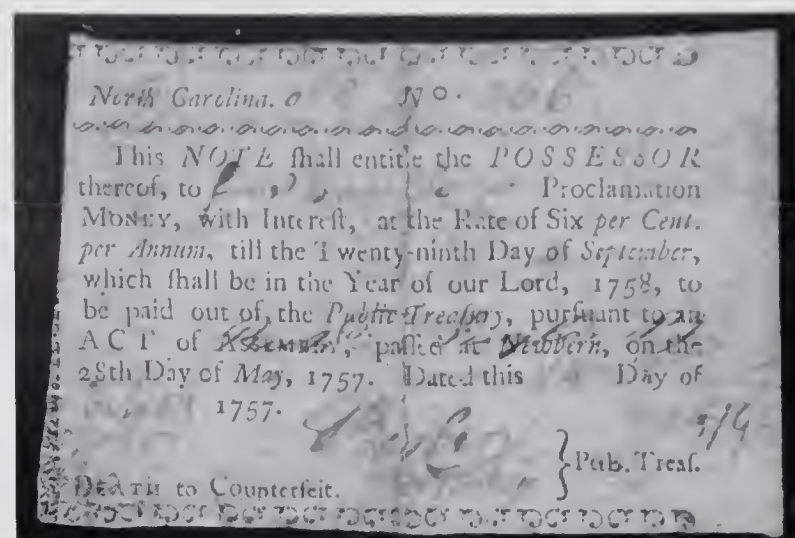 North Carolina. No.
This NOTE ſhall entitle the POSSESSOR
thereof, to Proclamation
MONEY, with Intereſt, at the Rate of Six per Cent.
per Annum, till the Twenty-ninth Day of September,
which ſhall be in the Year of our Lord, 1758, to
be paid out of, the Public Treaſury, purſuant to an
ACT of ASSEMBLY, paſſed at Newbern, on the
28th Day of May, 1757. Dated this Day of
1757.
Pub. Treaſ.
DEATH to Counterfeit.